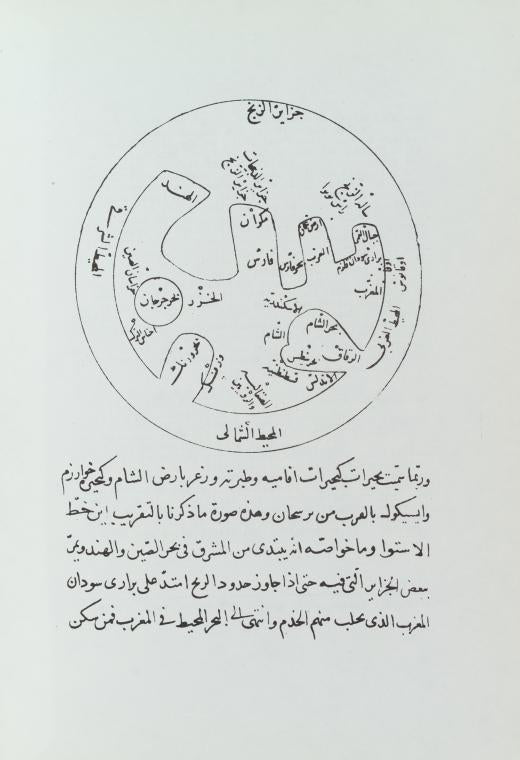 جزاير الزنج
الهند
مكران
فارس
بحر فارس
العرب
جبال القمر
المغرب
المحيط الغربي
بحر جرجان
الخزر
الشام
بحر الشام
الزقاق
الاندلس
المحيط الشمالى
وربما سميت بحيرات كبحيرات افاميه وطبرته وزغر بارض الشام وكبحيرة خوارزم
وايسيكول بالقرب من برسحان وهذه صورة ما ذكرنا بالتقريب اين خط
الاستوا وما خواصه انه يبتدى من المشرق فى بحر الصين والهند ويمر
ببعض الجزاير التى فيه حتى اذا جاوز حدود الزنج امتد على برارى سودان
المغرب الذى يجلب منهم الخدم وانتهى الى البحر المحيط فى المغرب فمن سكن